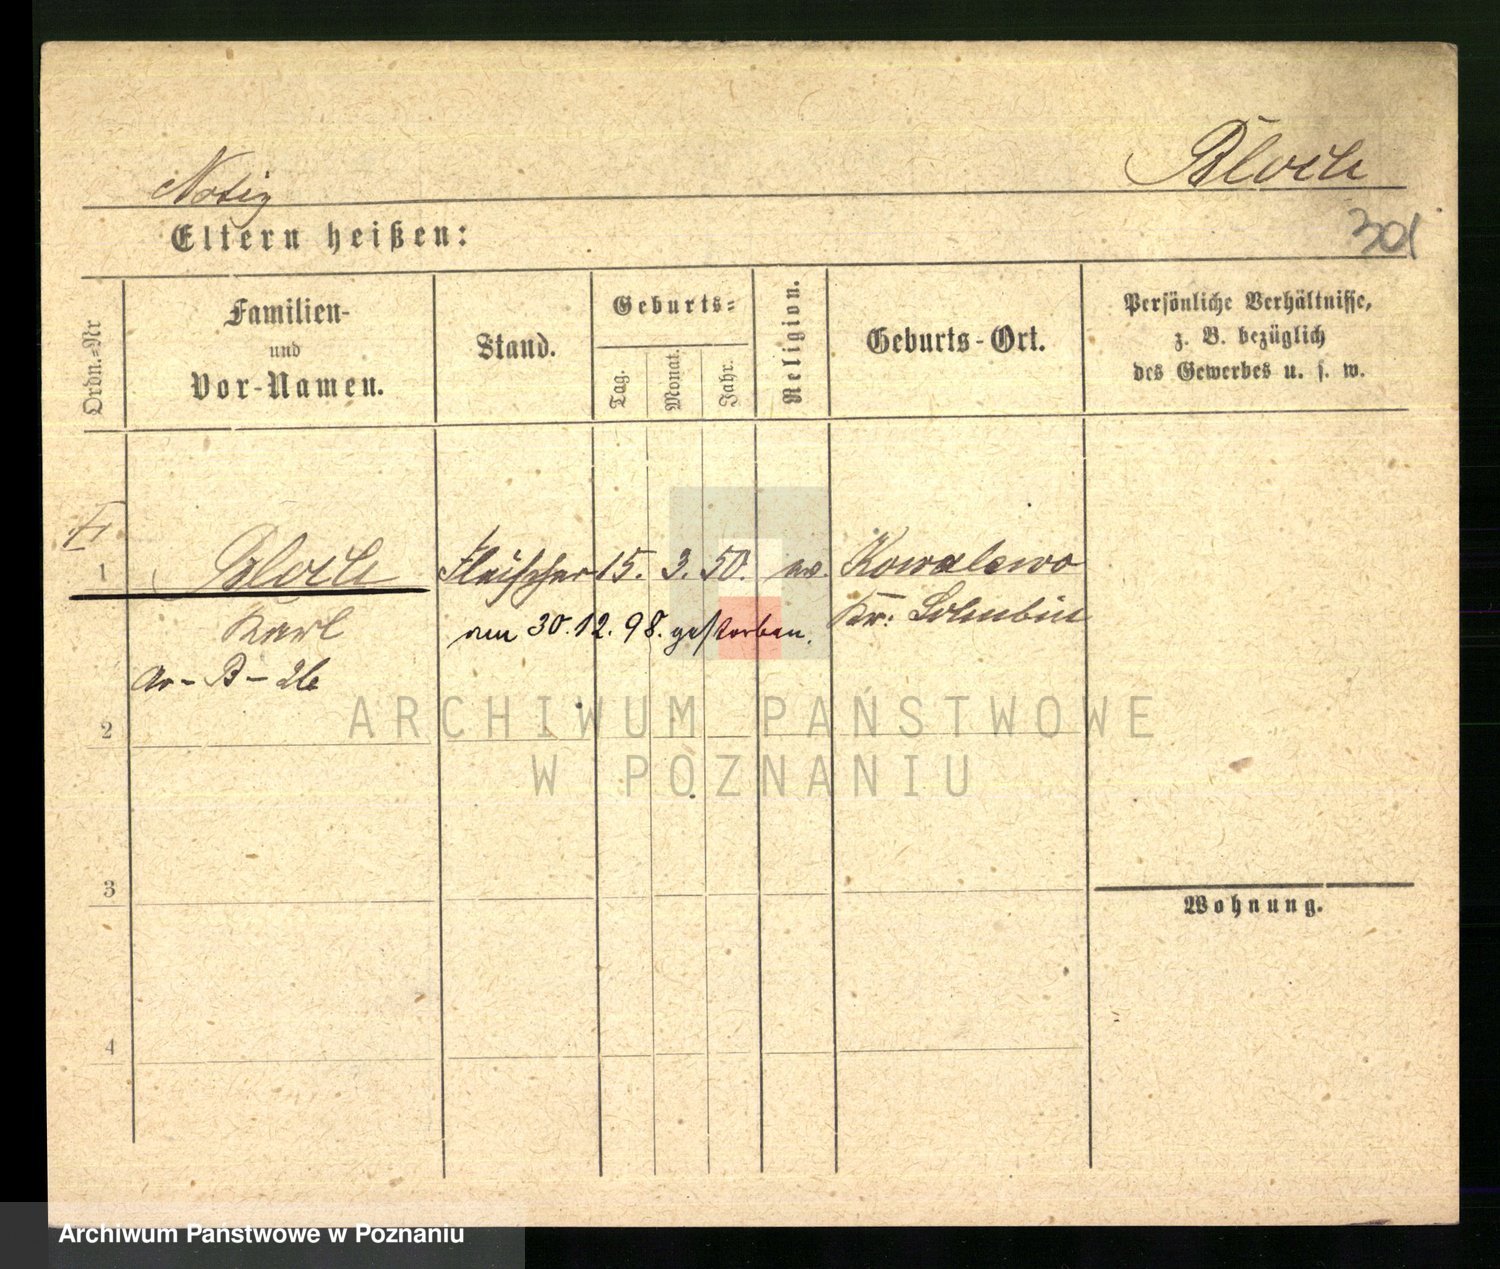 Notiz
Bloch
301
Eltern heißen:
Ordn.=Nr
Familien-
und
Vor-Namen.
Stand.
Geburts=
Tag.
Monat.
Jahr.
Religion.
Geburts-Ort.
Persönliche Verhältnisse,
z. B. bezüglich
des Gewerbes u. s. w.
1 Bloch Fleischer 15. 3. 50. ev. Kowalewo
Karl am 30.12.98. gestorben. Kr: Schubin
B - 26
2
3
4
Wohnung.
ARCHIWUM PAŃSTWOWE
W POZNANIU
Archiwum Państwowe w Poznaniu